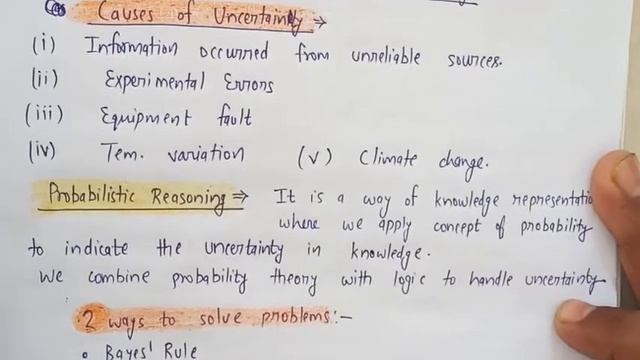 Causes of Uncertainty ⇒
(i) Information occurred from unreliable sources.
(ii) Experimental Errors
(iii) Equipment fault
(iv) Tem. variation (v) Climate change.
Probabilistic Reasoning ⇒ It is a way of knowledge representatio
where we apply concept of probability
to indicate the uncertainty in knowledge.
We combine probability theory with logic to handle uncertainty
2 ways to solve problems:-
• Bayes' Rule